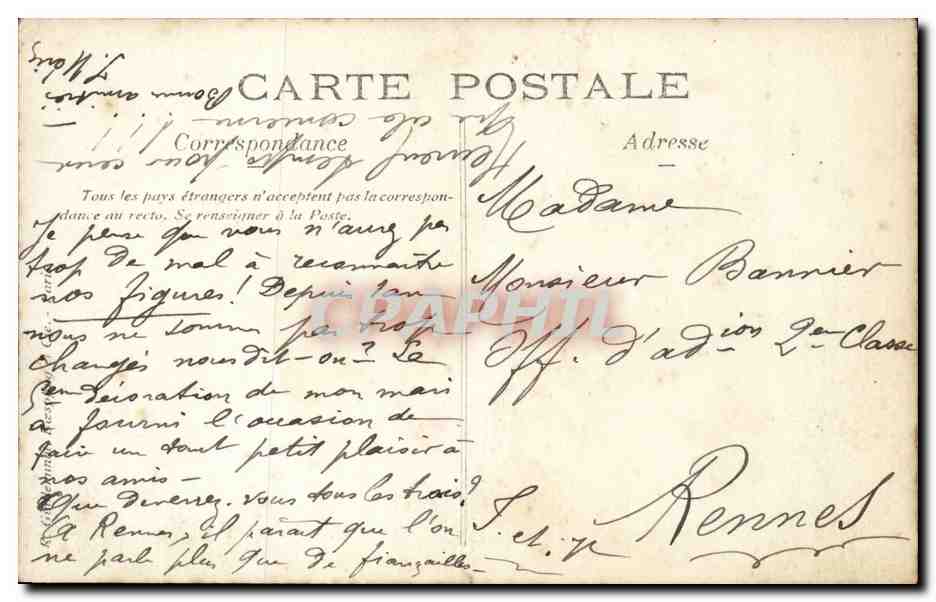 CARTE POSTALE
Correspondance
Adresse
Tous les pays étrangers n'acceptent pas la correspon-
dance au recto. Se renseigner à la Poste.
Je pense que vous n'aurez pas
trop de mal à reconnaître
nos figures! Depuis
nous ne sommes pas trop
changés nous dit-on? La
décoration de mon mari
a fourni l'occasion de
faire un tout petit plaisir à
nos amis -
Que devenez-vous tous les trois?
A Rennes, il paraît que l'on
ne parle plus que de fiançailles -
que cela concerne
Bonnes amitiés
Madame
Monsieur Bannier
Off. d'ad-ion 2em Classe
Rennes
I-et-V
CPAPHIL